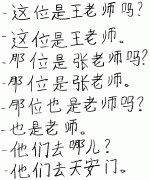 -这位是王老师吗?
-这位是王老师。
-那位是张老师吗?
-那位是张老师。
-那位也是老师吗?
-也是老师。
-他们去哪儿?
-他们去天安门。